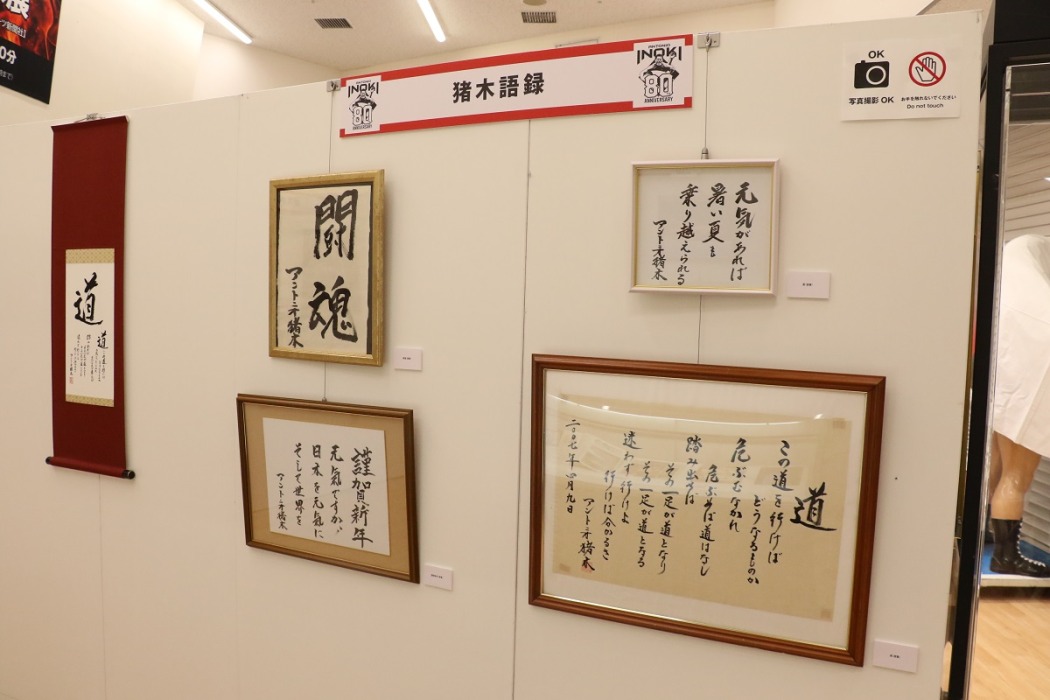 展
0分
猪木語録
ANTONIO
INOKI
80
ANNIVERSARY
ANTONIO
INOKI
80
ANNIVERSARY
OK
写真撮影 OK
お手を触れないでください
Do not touch
道
道
闘魂
アントニオ猪木
元気があれば
暑い夏も
乗り越えられる
アントニオ猪木
謹賀新年
元気ですか、
日本を元気に
そして世界を
アントニオ猪木
道
この道を行けば
どうなるものか
危ぶむなかれ
危ぶめば道はなし
踏み出せば
その一足が道となり
その一足が道となる
迷わず行けよ
行けば分かるさ
アントニオ猪木
二〇〇七年四月九日